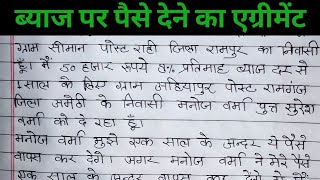 ब्याज पर पैसे देने का एग्रीमेंट
ग्राम सीमान पोस्ट राही जिला रामपुर का निवासी
हूँ। मैं 50 हजार रूपये 8% प्रतिमाह ब्याज दर से
1 साल के लिए ग्राम अहियापुर पोस्ट रामगंज
जिला अमेठी के निवासी मनोज वर्मा पुत्र सुरेश
वर्मा को दे रहा हूँ।
मनोज वर्मा मुझे एक साल के अन्दर ये पैसे
वापस कर देगें। अगर मनोज वर्मा ने मेरे पैसे
एक साल के अन्दर वापस